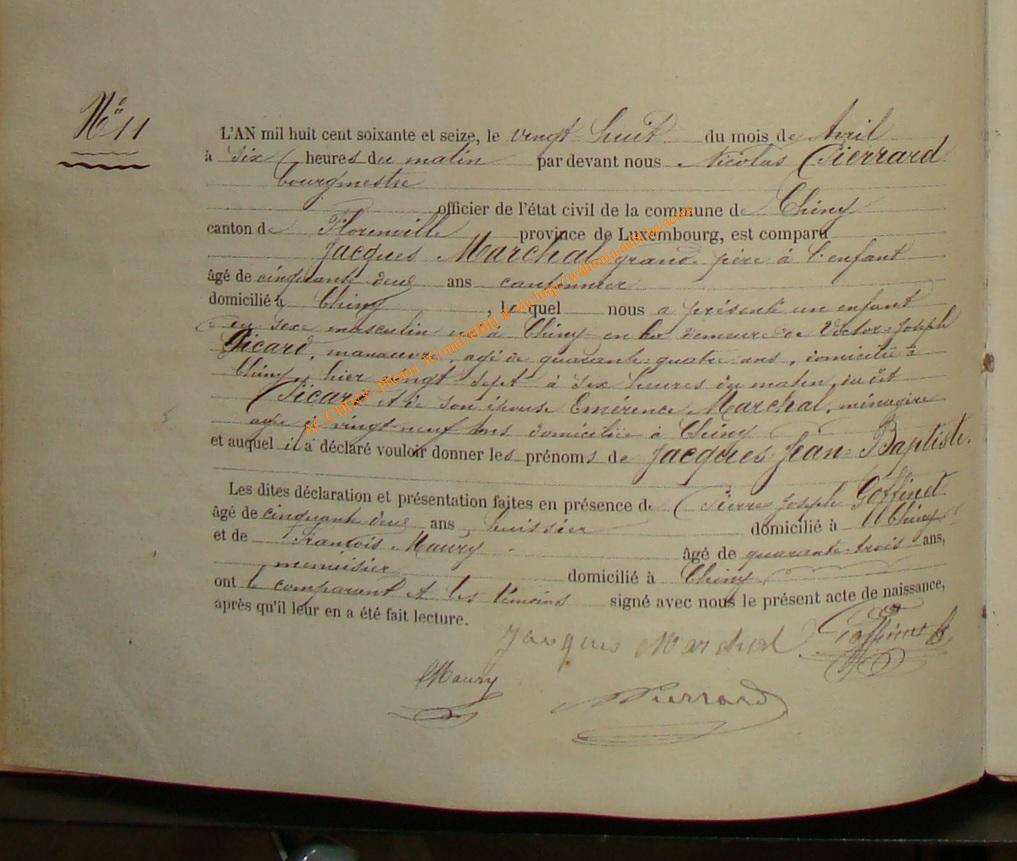 N° 11
L'AN mil huit cent soixante et seize, le vingt-huit du mois de Avril
à six heures du matin par devant nous Nicolas Pierrard
bourgmestre
officier de l'état civil de la commune de Chiny
canton de Florenville province de Luxembourg, est comparu
Jacques Marchal grand-père à l'enfant
âgé de cinquante deux ans cantonnier
domicilié à Chiny, lequel nous a présenté un enfant
du sexe masculin né à Chiny en la demeure de Victor-Joseph
Picard, manœuvre, âgé de quarante-quatre ans, domicilié à
Chiny, hier vingt sept à six heures du matin, du dit
Picard et de son épouse Emérence Marchal, ménagère
agée de vingt-neuf ans domiciliée à Chiny
et auquel il a déclaré vouloir donner les prénoms de Jacques-Jean-Baptiste.
Les dites déclaration et présentation faites en présence de Pierre Joseph Goffinet
âgé de cinquante deux ans, huissier domicilié à Chiny
et de François Maury âgé de quarante-trois ans,
menuisier domicilié à Chiny
ont le comparant et les témoins signé avec nous le présent acte de naissance,
après qu'il leur en a été fait lecture.
Jacques Marchal Goffinet
Maury Pierrard